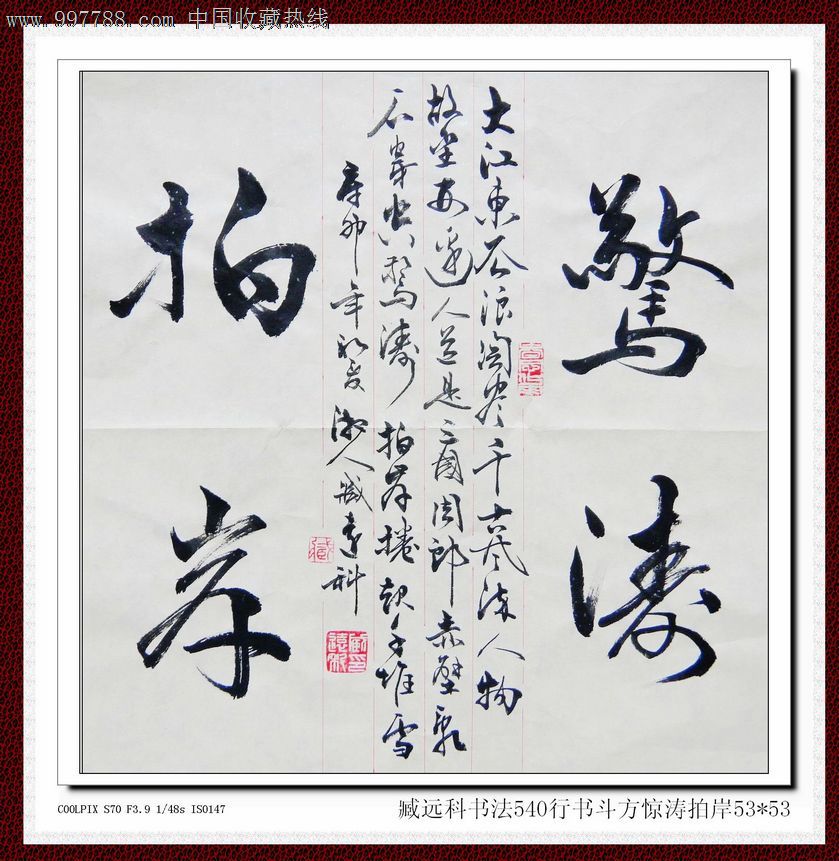 www.997788.com 中国收藏热线
驚濤
大江東去浪淘尽千古风流人物
故壘西邊人道是三國周郎赤壁亂
石穿空驚濤拍岸捲起千堆雪
辛卯年初夏 人臧遠科
拍岸
COOLPIX S70 F3.9 1/48s ISO147
臧远科书法540行书斗方惊涛拍岸53*53